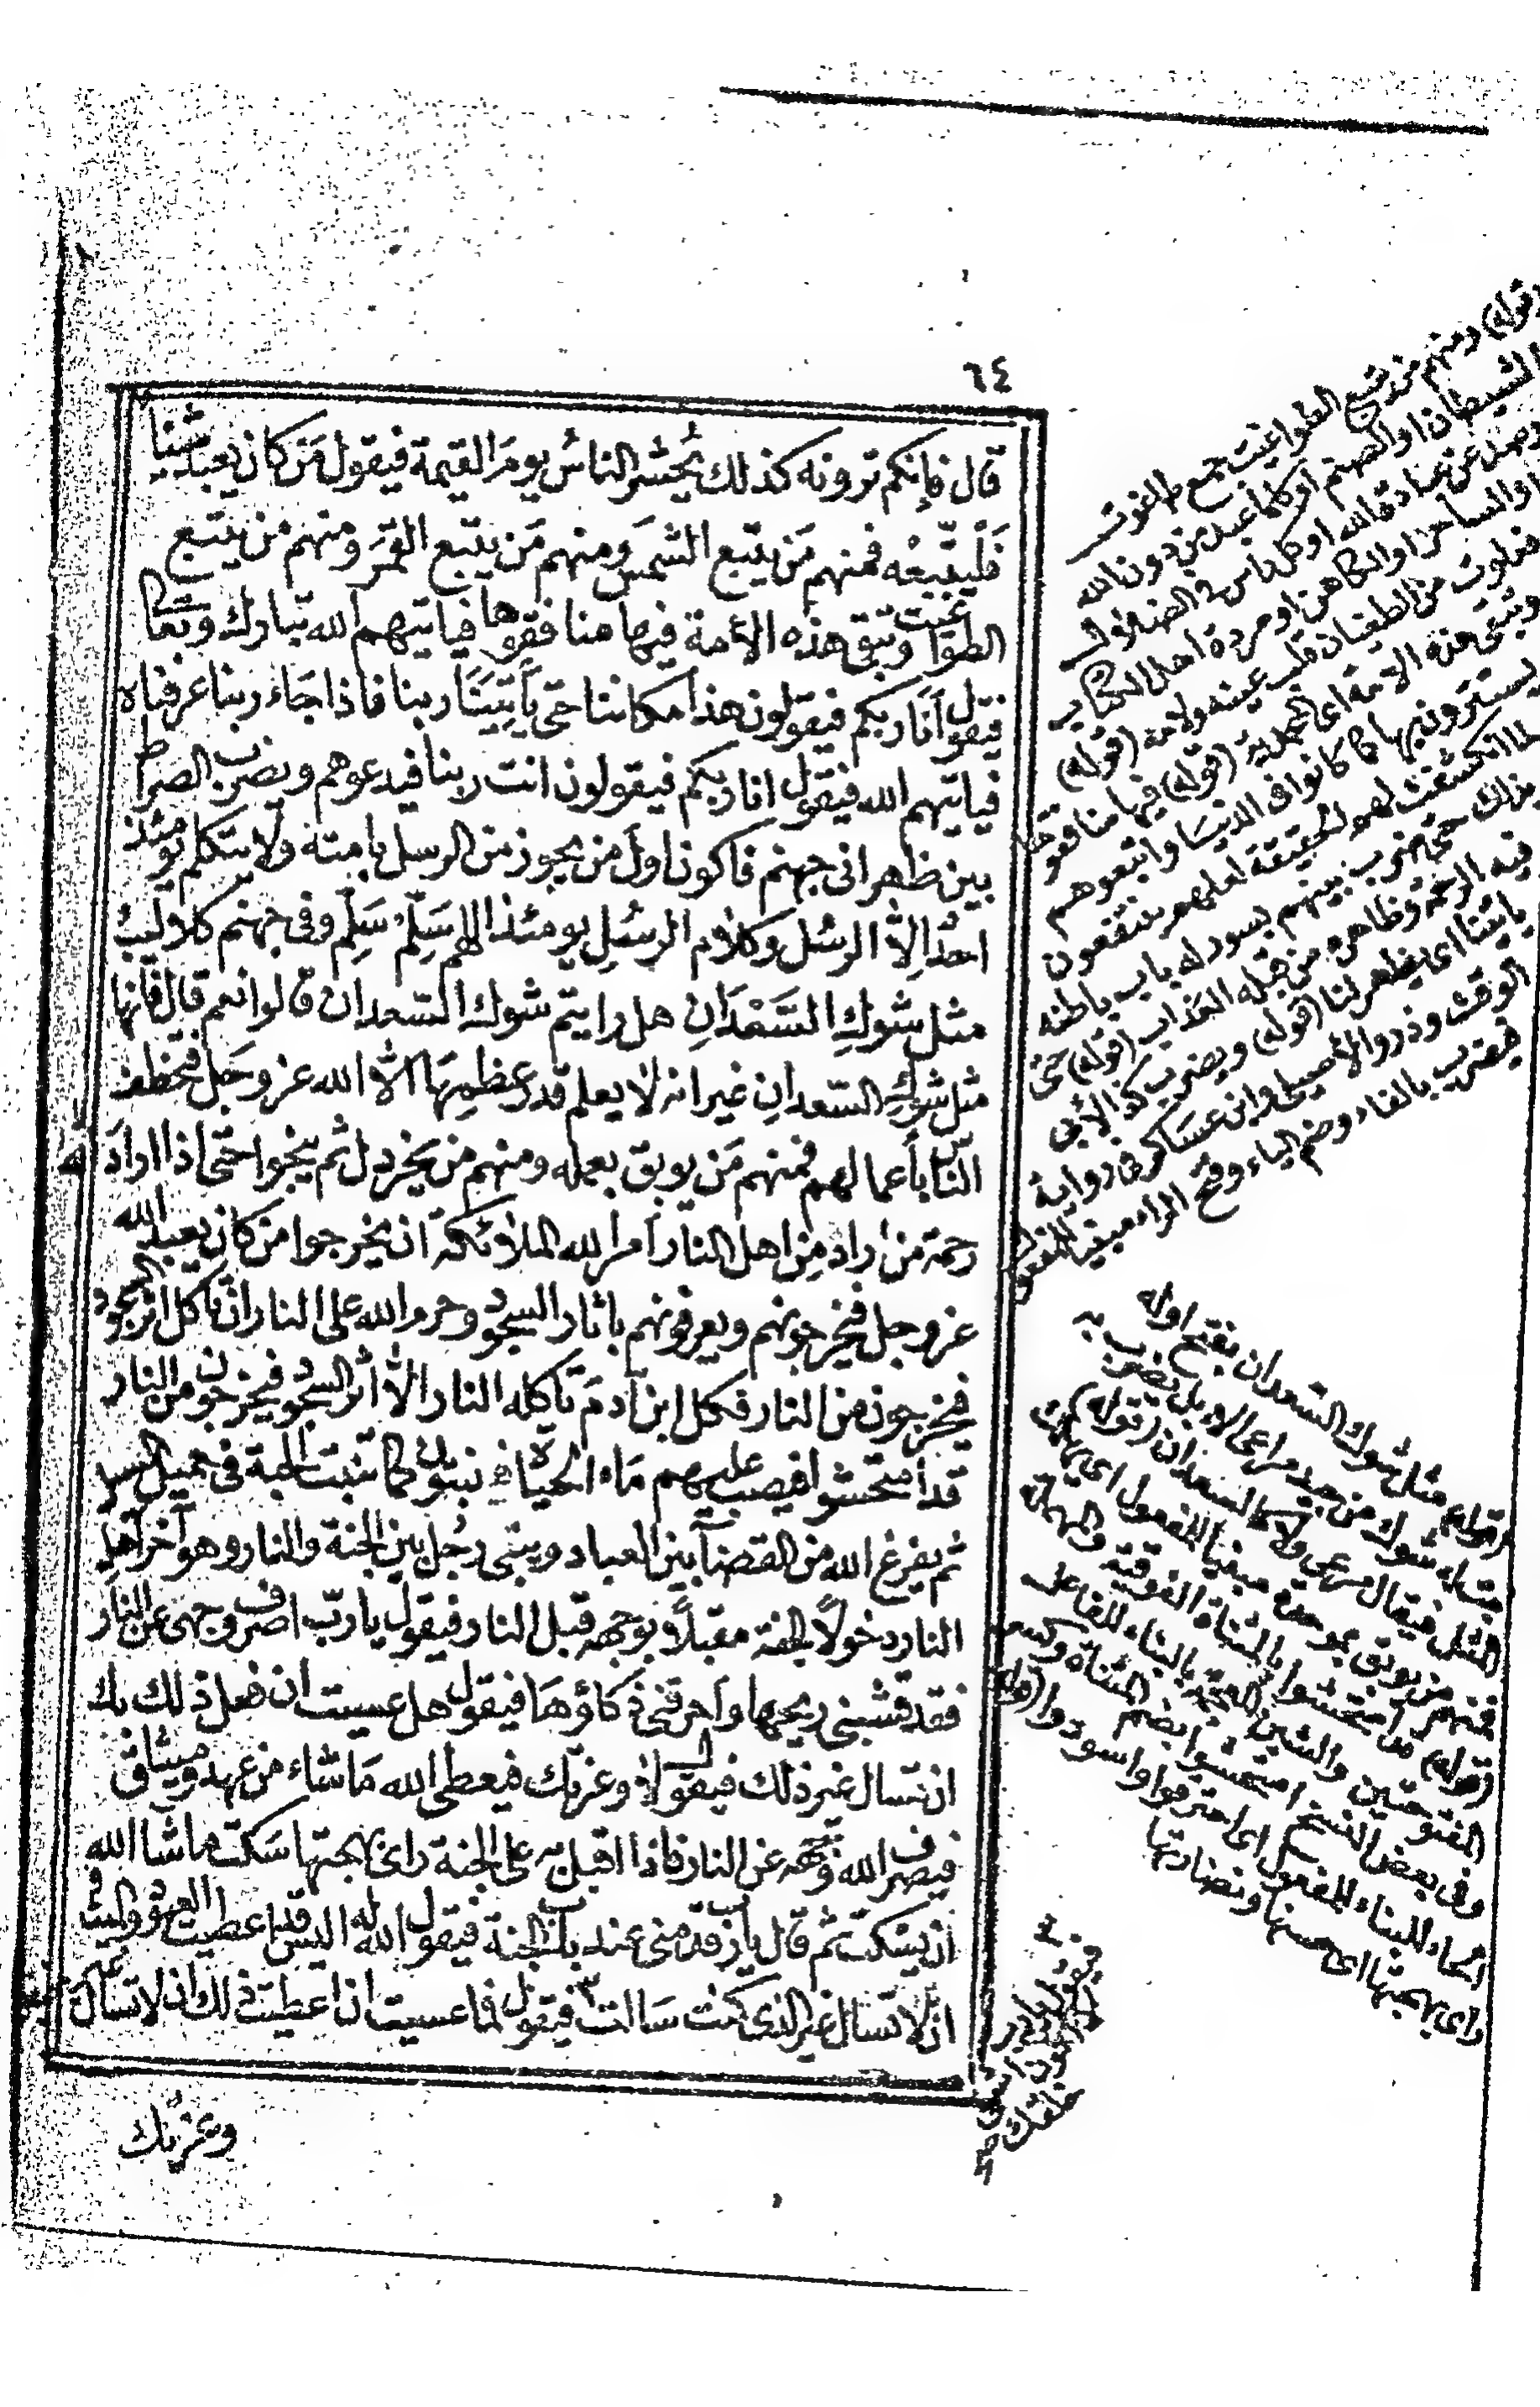 ٦٤
قال فإنكم ترونه كذلك يُحشر الناسُ يومَ القيمة فيقول مَن كان يعبد شيئا
فَلْيتَّبِعْه فمنهم مَن يتّبع الشمسَ ومنهم مَن يتبع القمرَ ومنهم من يتبع
الطواغيت وتبقى هذه الأمة فيها منافقوها فيأتيهم الله تبارك وتعالى
فيقول أنا ربكم فيقولون هذا مكاننا حتى يأتِيَنَا ربنا فاذا جَاءَ ربنا عرفناه
فياتيهم الله فيقول انا ربكم فيقولون انت ربنا فيدعوهم ويضرب الصراط
بين ظهرانى جهنم فاكون اول من يجوز من الرسل بامته ولا يتكلم يومئذ
احدٌ اِلاَّ الرسُل وكلامُ الرسُلِ يومئذ اللهم سَلِّمْ سَلِّم وفى جهنم كلاليبُ
مثل شوكِ السَّعْدَانِ هل رايتم شوك السعدان قالوا نعم قال فانها
مثل شوكِ السّعدانِ غير انه لا يعلم قدر عظمِهَا الاّ الله عز وجل فتخطف
الناسَ باَعمالهم فمنهم مَن يوبق بعمله ومنهم من يخردل ثم ينجوا حتى اذا ارادَ الله
رحمة من اراد مِن اهل النار اَمر الله الملائكة ان يخرجوا من كان يعبد الله
عز وجل فيخرجونهم ويعرفونهم باثار السجود وحرم الله على النار ان تاكل اثر السجود
فيخرجون من النار فكل ابن آدمَ تاكله النار الاّ أثر السجود فيخرجون من النار
قد امتحشوا فيصب عليهم مَاء الحيَاة فينبتون كما تنبت الحبة فى حميل السيل
ثم يفرغ الله من القضآ بين العباد ويبقى رجُل بين الجنة والنار وهو آخر اَهلِ
النار دخولًا الجنة مقبلًا بوجهه قبل النار فيقول يا ربّ اصرف وجهى عن النار
فقد قشبنى ريحها واَحرقنى ذكاؤهَا فيقول هل عسيت ان فعل ذلك بك
ان تسال غير ذلك فيقول لا وعزتك فيعطى الله مَا شاء من عهد وميثاق
فيصرف الله وجهه عن النار فاذا اقبل به على الجنة راى بهجتها سَكت ما شآ الله
ان يسْكت ثم قال يا رب قدمنى عند باب الجنة فيقول الله له اليس قد اعطيت العهود والميثاق
ان لا تسال غير الذى كنت سَالت فيقول فما عسيت ان اعطيت ذلك ان لا تسال غيره
وعزتك
(قوله) ومنهم من يتبع الطواغيت جمع طاغوت
الشيطان او الصنم او كل ما عبد من دون الله
وصد عن عبادة الله او كل راس فى الضلال
او الساحر او الكاهن او مردة اهل الكتاب
فعلوت من الطغيان قلب عينه ولامه (قوله)
وتبقى هذه الامة اى المحمدية (قوله) فيها منافقوها
يستترون بها كما كانوا فى الدنيا واتبعوهم
لما انكشفت لهم الحقيقة لعلهم ينتفعون
بذلك حتى ضرب بينهم بسور له باب باطنه
فيه الرحمة وظاهره من قبله العذاب (قوله) حتى
ياتينا اى يظهر لنا (قوله) ويضرب كذا لأبى
الوقت وذر والأصيلى وابن عساكر فى رواية
فيضرب بالفاء وضم الياء وفتح الراء مبنيا للمفعول
(قوله) مثل شوك السعدان بفتح اوله
نبات له شوك من جيد مراعى الابل يضرب به
المثل فيقال مرعى ولا كالسعدان (قوله)
فمنهم من يوبق بموحدة مبنيا للمفعول اى يهلك
(قوله) قد امتحشوا بالمثناة الفوقية والمهملة
المفتوحتين والشين المعجمة بالبناء للفاعل
وفى بعض النسخ امتحشوا بضم المثناة وكسر
الحاء للبناء للمفعول اى احترقوا واسودوا (قوله)
راى بهجتها اى حسنها ونضارتها